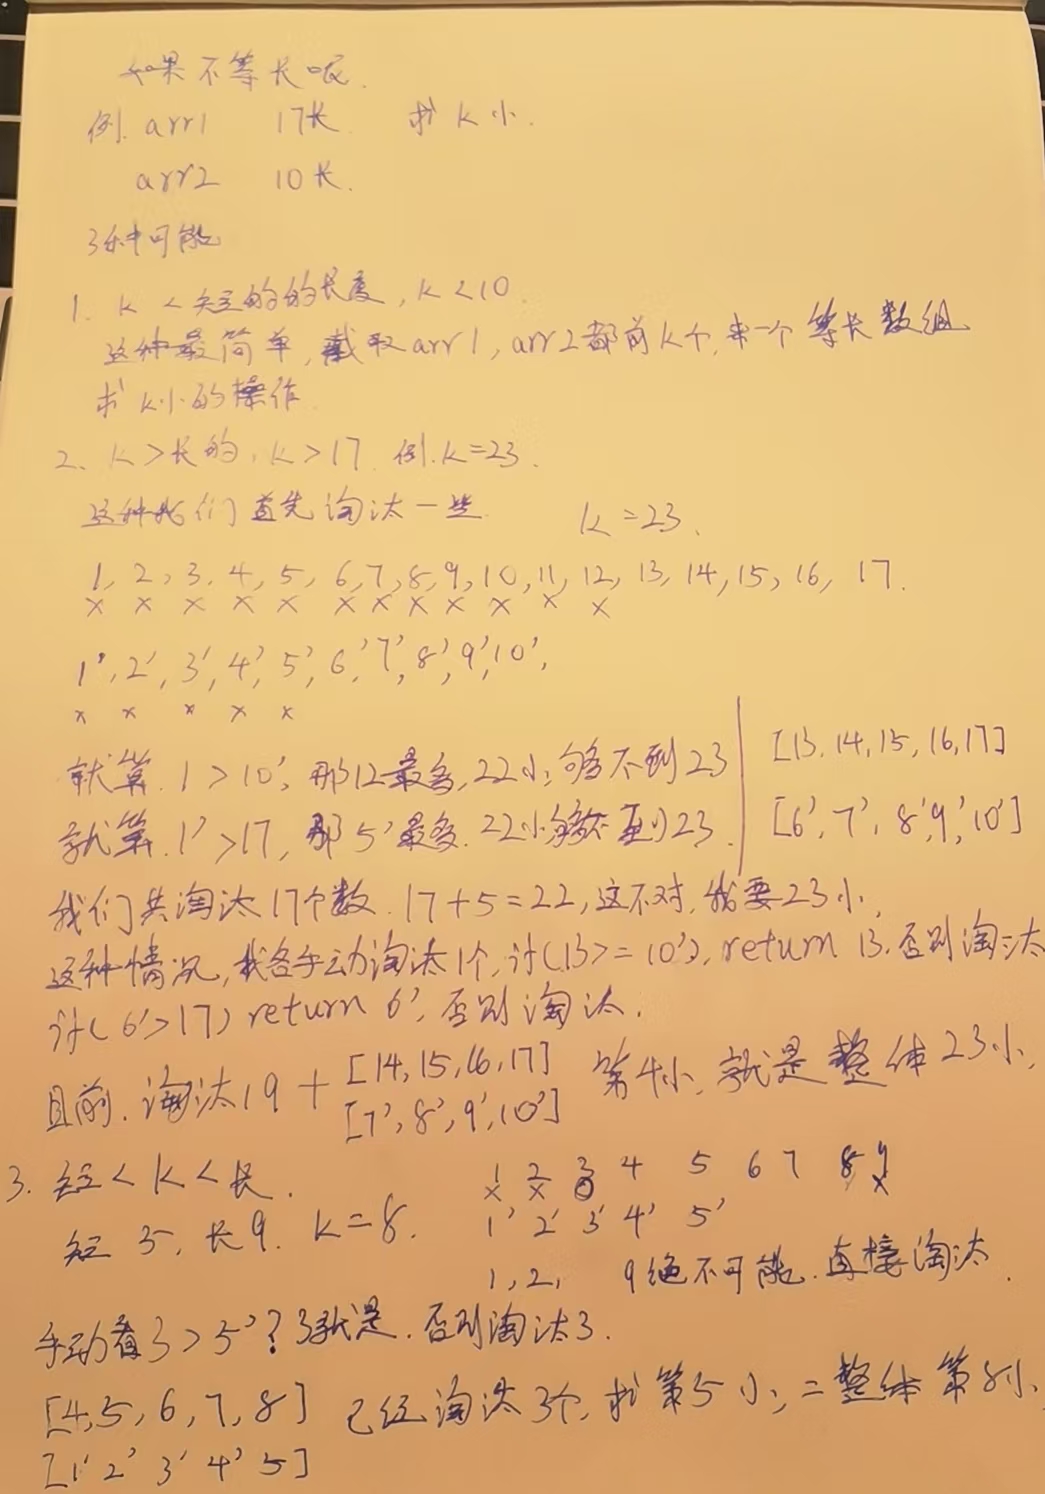 如果不等长呢.
例. arr1 17长. 求k小.
arr2 10长.
3种可能
1. k < 短的的长度, k<10.
这种最简单, 截取arr1, arr2都前k个, 来一个等长数组
求k小的操作.
2. k>长的, k>17. 例. k=23.
这种我们首先淘汰一些. k=23.
1, 2, 3, 4, 5, 6, 7, 8, 9, 10, 11, 12, 13, 14, 15, 16, 17.
x x x x x x x x x x x x
1', 2', 3', 4', 5', 6', 7', 8', 9', 10',
x x x x x
就算. 1>10', 那12最多, 22小, 够不到23 [13, 14, 15, 16, 17]
就算. 1'>17, 那5'最多. 22小够不到23. [6', 7', 8', 9', 10']
我们共淘汰17个数. 17+5=22, 这不对, 我要23小,
这种情况, 我各手动淘汰1个, if(13>=10'), return 13. 否则淘汰
if(6'>17) return 6', 否则淘汰.
目前. 淘汰19 + [14, 15, 16, 17] 第4小, 就是整体23小,
[7', 8', 9', 10']
3. 短<k<长. 1 2 3 4 5 6 7 8 9
x x x
短5, 长9. k=8. 1' 2' 3' 4' 5'
1, 2, 9绝不可能. 直接淘汰.
手动看3>5'? 3就是. 否则淘汰3.
[4, 5, 6, 7, 8] 已经淘汰3个, 求第5小, = 整体第8小.
[1' 2' 3' 4' 5]